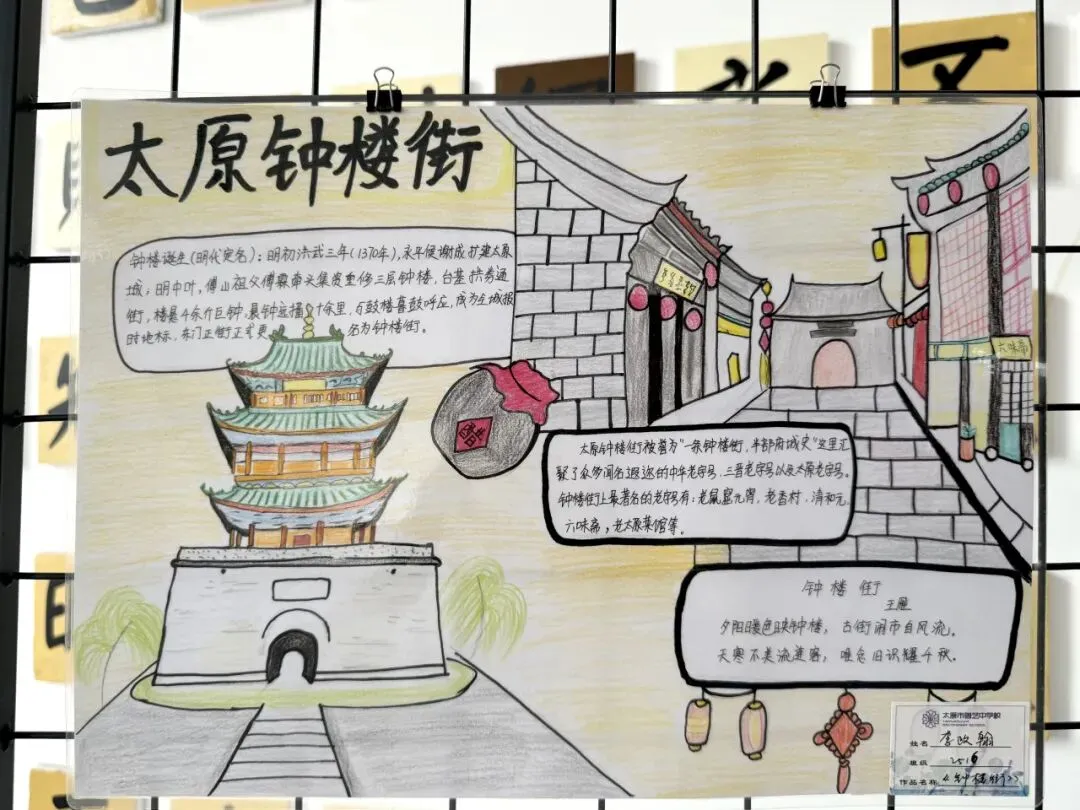 太原钟楼街
钟楼诞生(明代定名):明初洪武三年(1370年),永平侯谢成扩建太原
城;明中叶,傅山祖父傅霖带头集资重修三层钟楼,台基拱券通
街,楼悬千余斤巨钟,晨钟远播十余里,与鼓楼暮鼓呼应,成为全城报
时地标,东门正街正式更 名为钟楼街。
醋
太原钟楼街被誉为“一条钟楼街,半部府城史”这里汇
聚了众多闻名遐迩的中华老字号、三晋老字号以及太原老字号。
钟楼街上最著名的老字号有:老鼠窟元宵,老香村,清和元
六味斋,老太原菜馆等。
六味斋
钟楼街
王
夕阳暖色映钟楼,古街闹市自风流。
天寒不美流连客,唯念旧识耀千秋。
姓名 李政翰
班级 2516
作品名称《钟楼街》